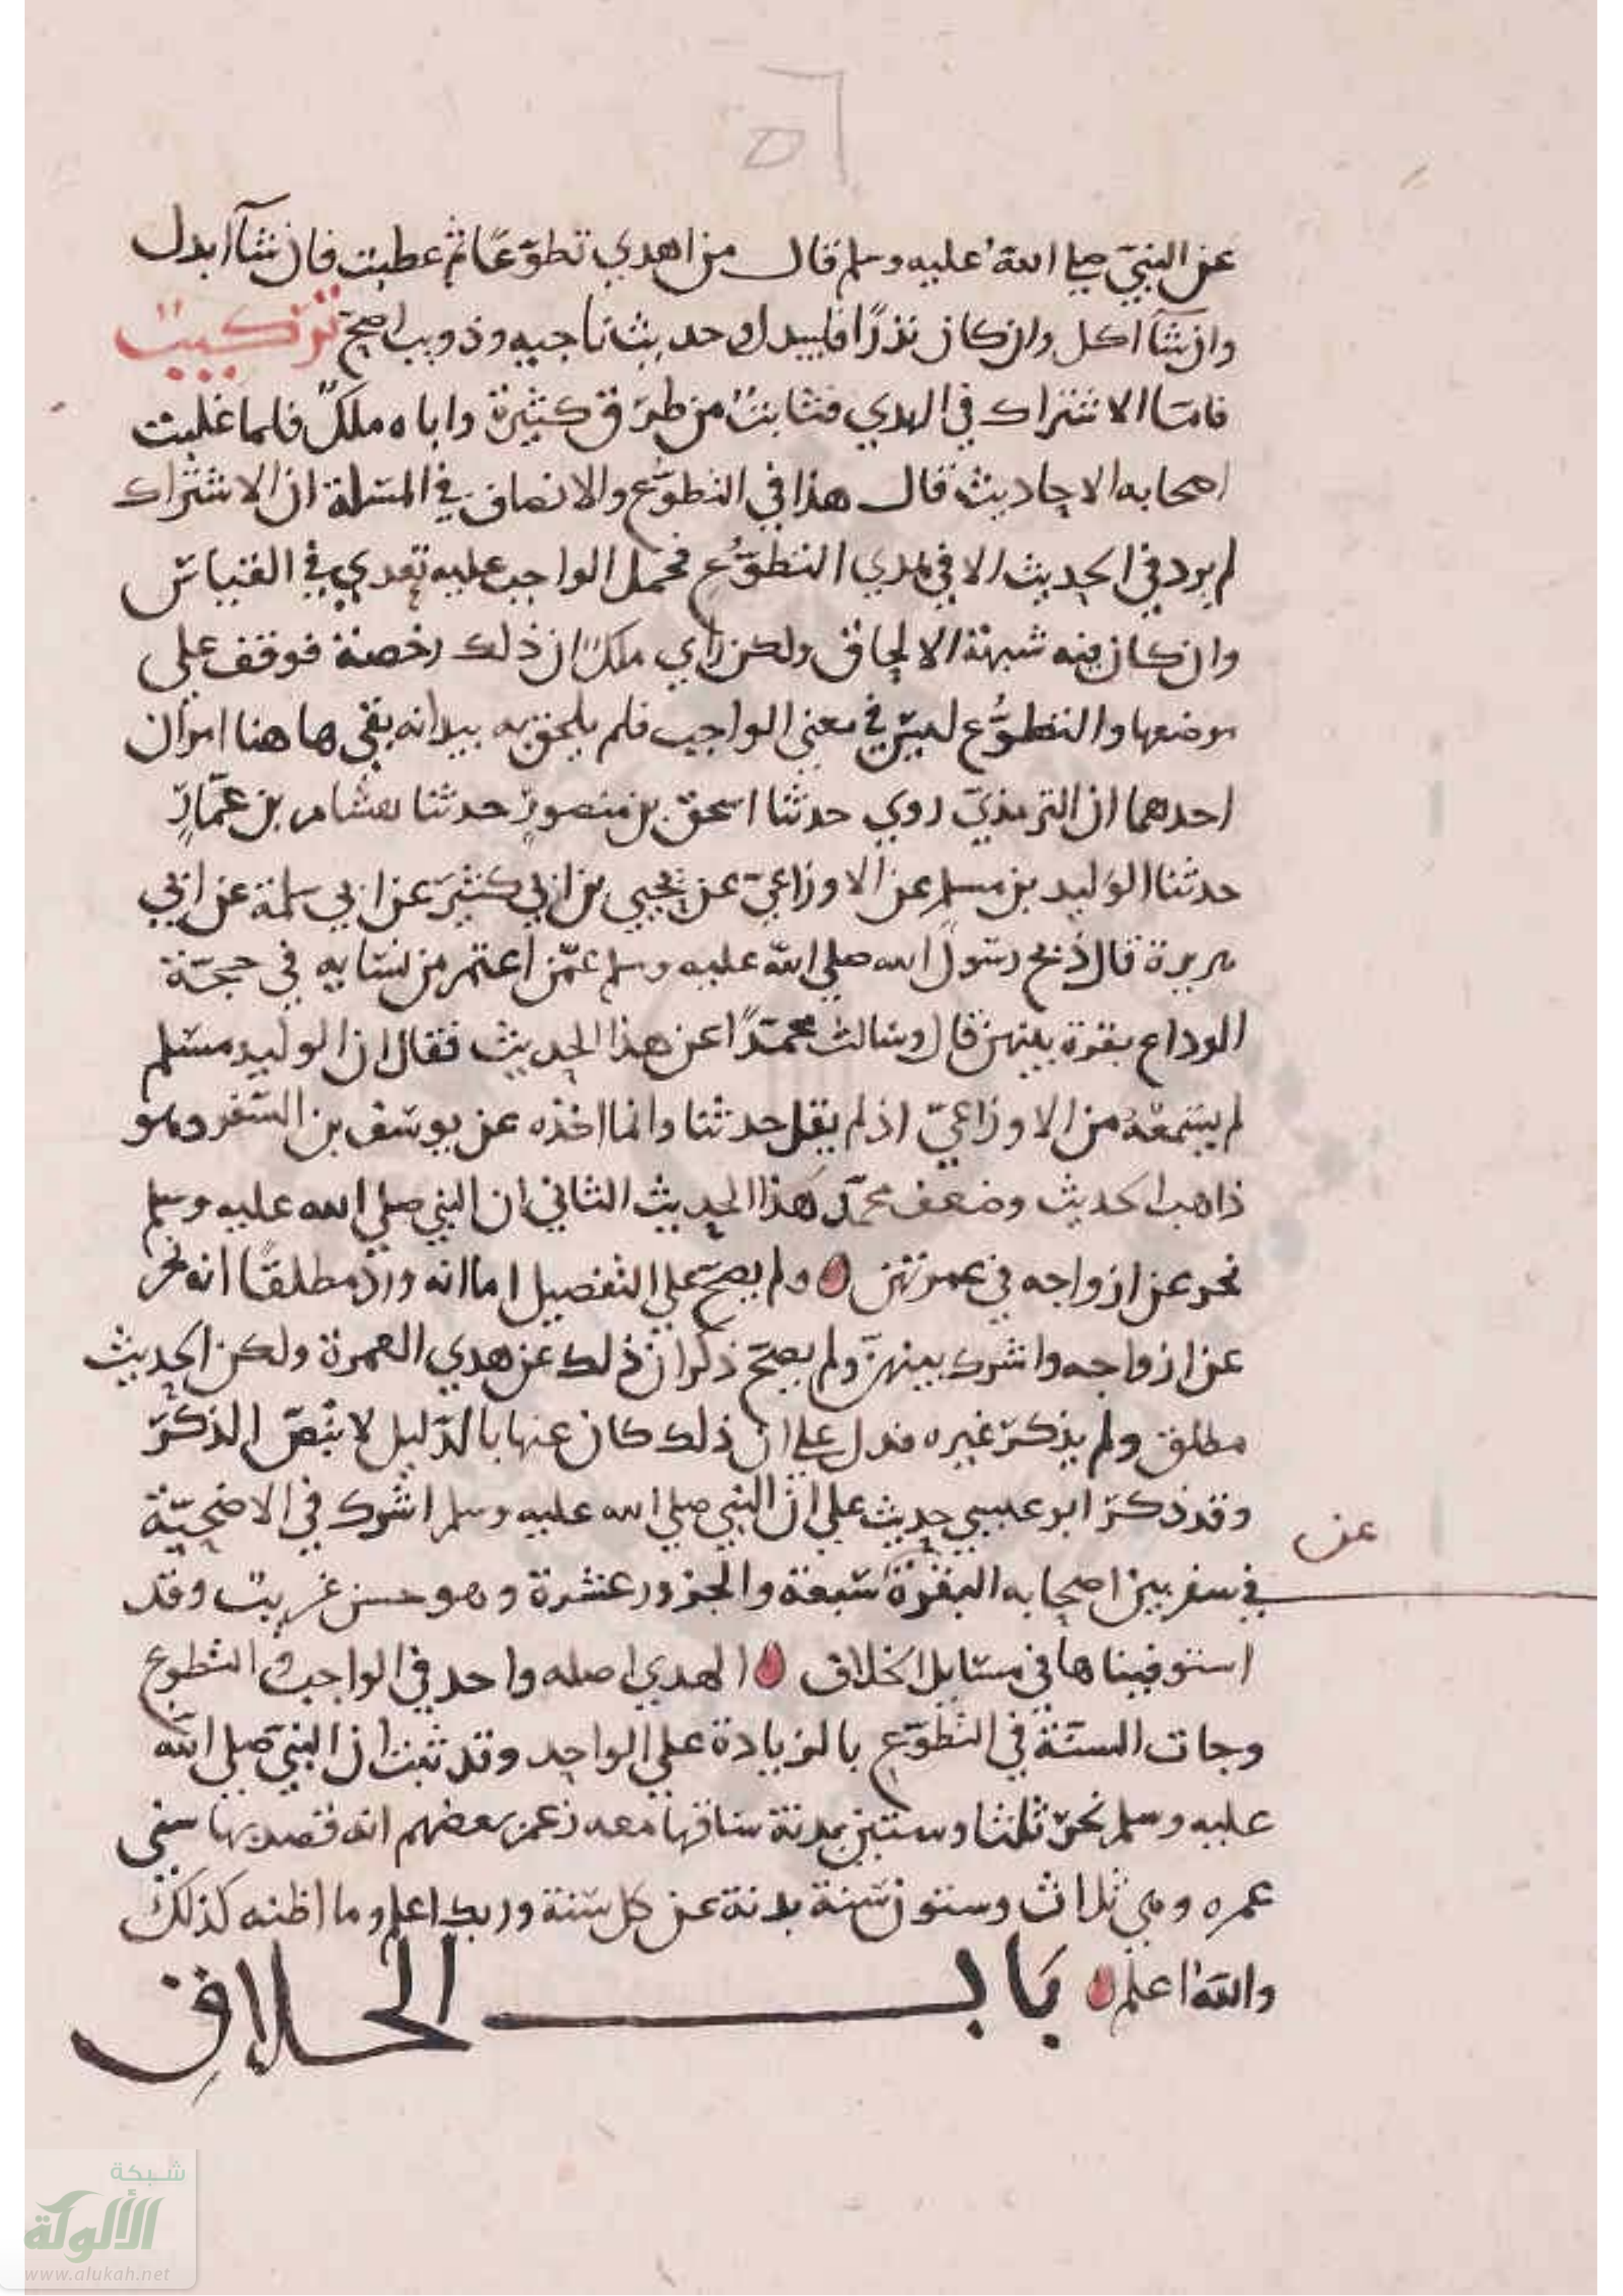 عن النبيّ صلى الله عليه وسلم قال من اهدي تطوّعًا ثم عطبت فان شآ ابدل
وان شآ اكل وان كان نذرًا فليبدل وحديث ناجيه وذويب اصحّ تركيبٌ
فامّا الاشتراك في الهدي فثابتٌ من طرق كثيرة واباه ملكٌ فلما غلبت
اصحابه الاحاديث قال هذا في التطوُّع والانصاف في المسلة ان الاشتراك
لم يرد في الحديث الا في هدي التطوُّع فحمل الواجب عليه تعدي في القياس
وان كان فيه شبهة الالحاق ولكن راي ملكٌ ان ذلك رخصة فوقف على
موضعها والتطوُّع ليس في معنى الواجب فلم يلحق به بيد انه بقي ها هنا امران
احدهما ان الترمذيّ روي حدثنا اسحق بن منصورٍ حدثنا هشام بن عمّارٍ
حدثنا الوليد بن مسلم عن الاوزاعيّ عن يحيي بن ابي كثير عن ابي سلمة عن ابي
هريرة قال ذبح رسول الله صلي الله عليه وسلم عمّن اعتمر من نسايه في حجّة
الوداع بقرة بينهن قال وسالت محمّدًا عن هذا الحديث فقال ان الوليد مسلم
لم يسمعْه من الاوزاعيّ اذ لم يقل حدثنا وانما اخذه عن يوسف بن السّفر وهو
ذاهب الحديث وضعف محمّد هذا الحديث الثاني ان النبي صلي الله عليه وسلم
نحر عن ازواجه في عمرتهن ولم يصحّ علي التفصيل اما انه وردَ مطلقًا انه نحر
عن ازواجه واشرك بينهنّ ولم يصحّ ذكر ان ذلك عن هدي العمرة ولكن الحديث
مطلق ولم يذكر غيره فدل علي ان ذلك كان عنها بالدّليل لا بنَصّ الذكر
وقد ذكر ابو عيسي حديث علي ان النبي صلي الله عليه وسلم اشرك في الاضحيّة
عن
في سفر بين اصحابه البقرة سبعة والجزور عشرة وهو حسن غريبٌ وقد
استوفيناها في مسايل الخلاف الهدي اصله واحد في الواجب والتطوع
وجات السّنّة في التطوّع بالزيادة علي الواحد وقد ثبت ان النبيّ صلي الله
عليه وسلم نحر ثلثا وستين بدنة ساقها معه زعم بعضهم انه قصد بها سني
عمره وهي ثلاث وستون سنة بدنة عن كل سنة وربك اعلم وما اظنه كذلك
والله اعلم باب الحلاق
شبكة
الألوكة
www.alukah.net